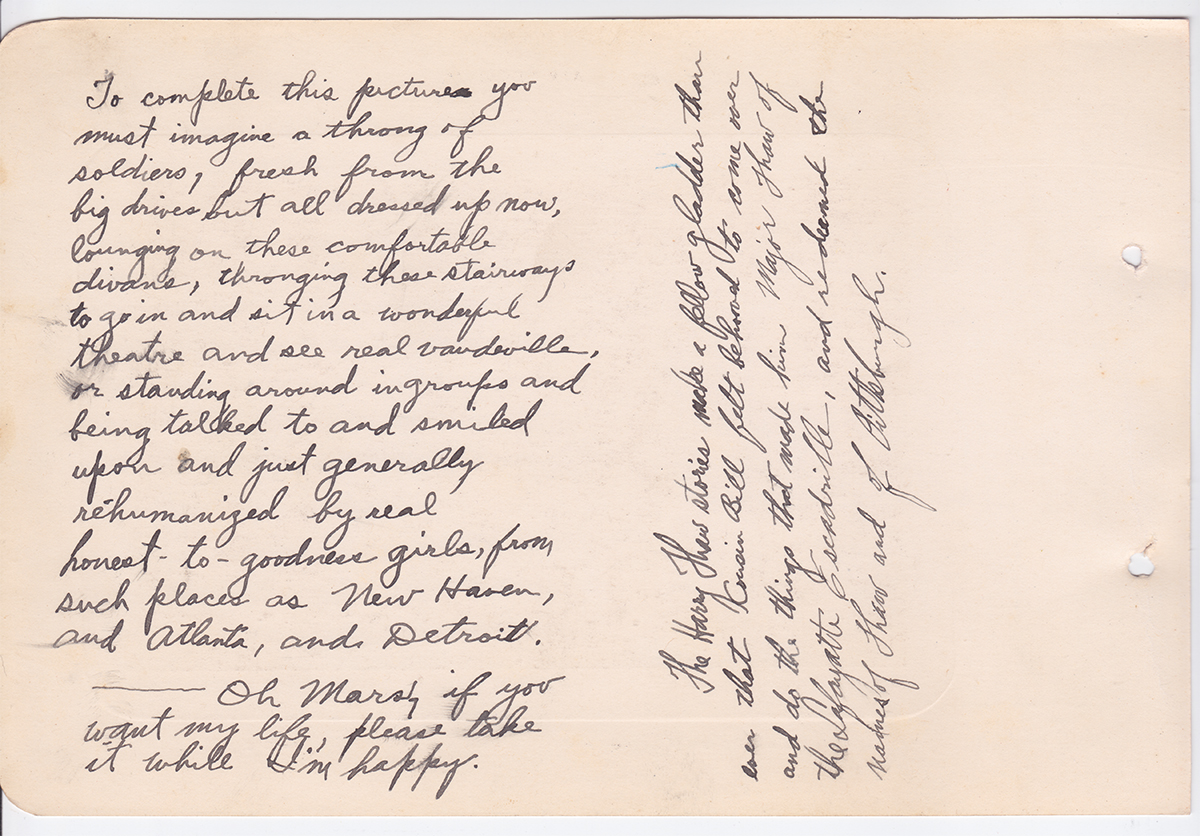 To complete this picture you
must imagine a throng of
soldiers, fresh from the
big drives but all dressed up now,
lounging on these comfortable
divans, thronging these stairways
to go in and sit in a wonderful
theatre and see real vaudeville,
or standing around in groups and
being talked to and smiled
upon and just generally
rehumanized by real
honest-to-goodness girls, from
such places as New Haven,
and Atlanta, and Detroit.
—— Oh Mars, if you
want my life, please take
it while I'm happy.
The Harry Thaw stories make a fellow gladder than
ever that Cousin Bill felt behooved to come over
and do the things that made him Major Thaw of
the Lafayette Escadrille, and redeemed the
names of Thaw and of Pittsburgh.